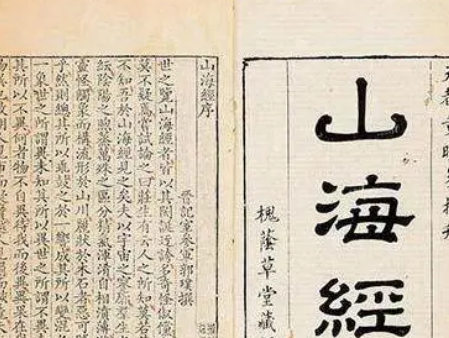 山海經
槐蔭草堂藏
山海經序
晉記室參軍郭璞撰
世之覽山海經者皆以其閎誕迂誇多奇怪俶儻
莫不疑焉嘗試論之曰莊生有云人之所知莫若
不知吾於山海經見之矣夫以宇宙之寥廓羣生
紜陰陽之煦蒸萬殊之區分精氣渾淆自相濆薄
靈怪觸象而構流形於山川麗狀於木石者惡可
乎然則總其所以乖鼓之於一響成其所以變混
一象世之所謂異未知其所以異世之所謂不異
其所以不異何者物不自異待我而後異異果在